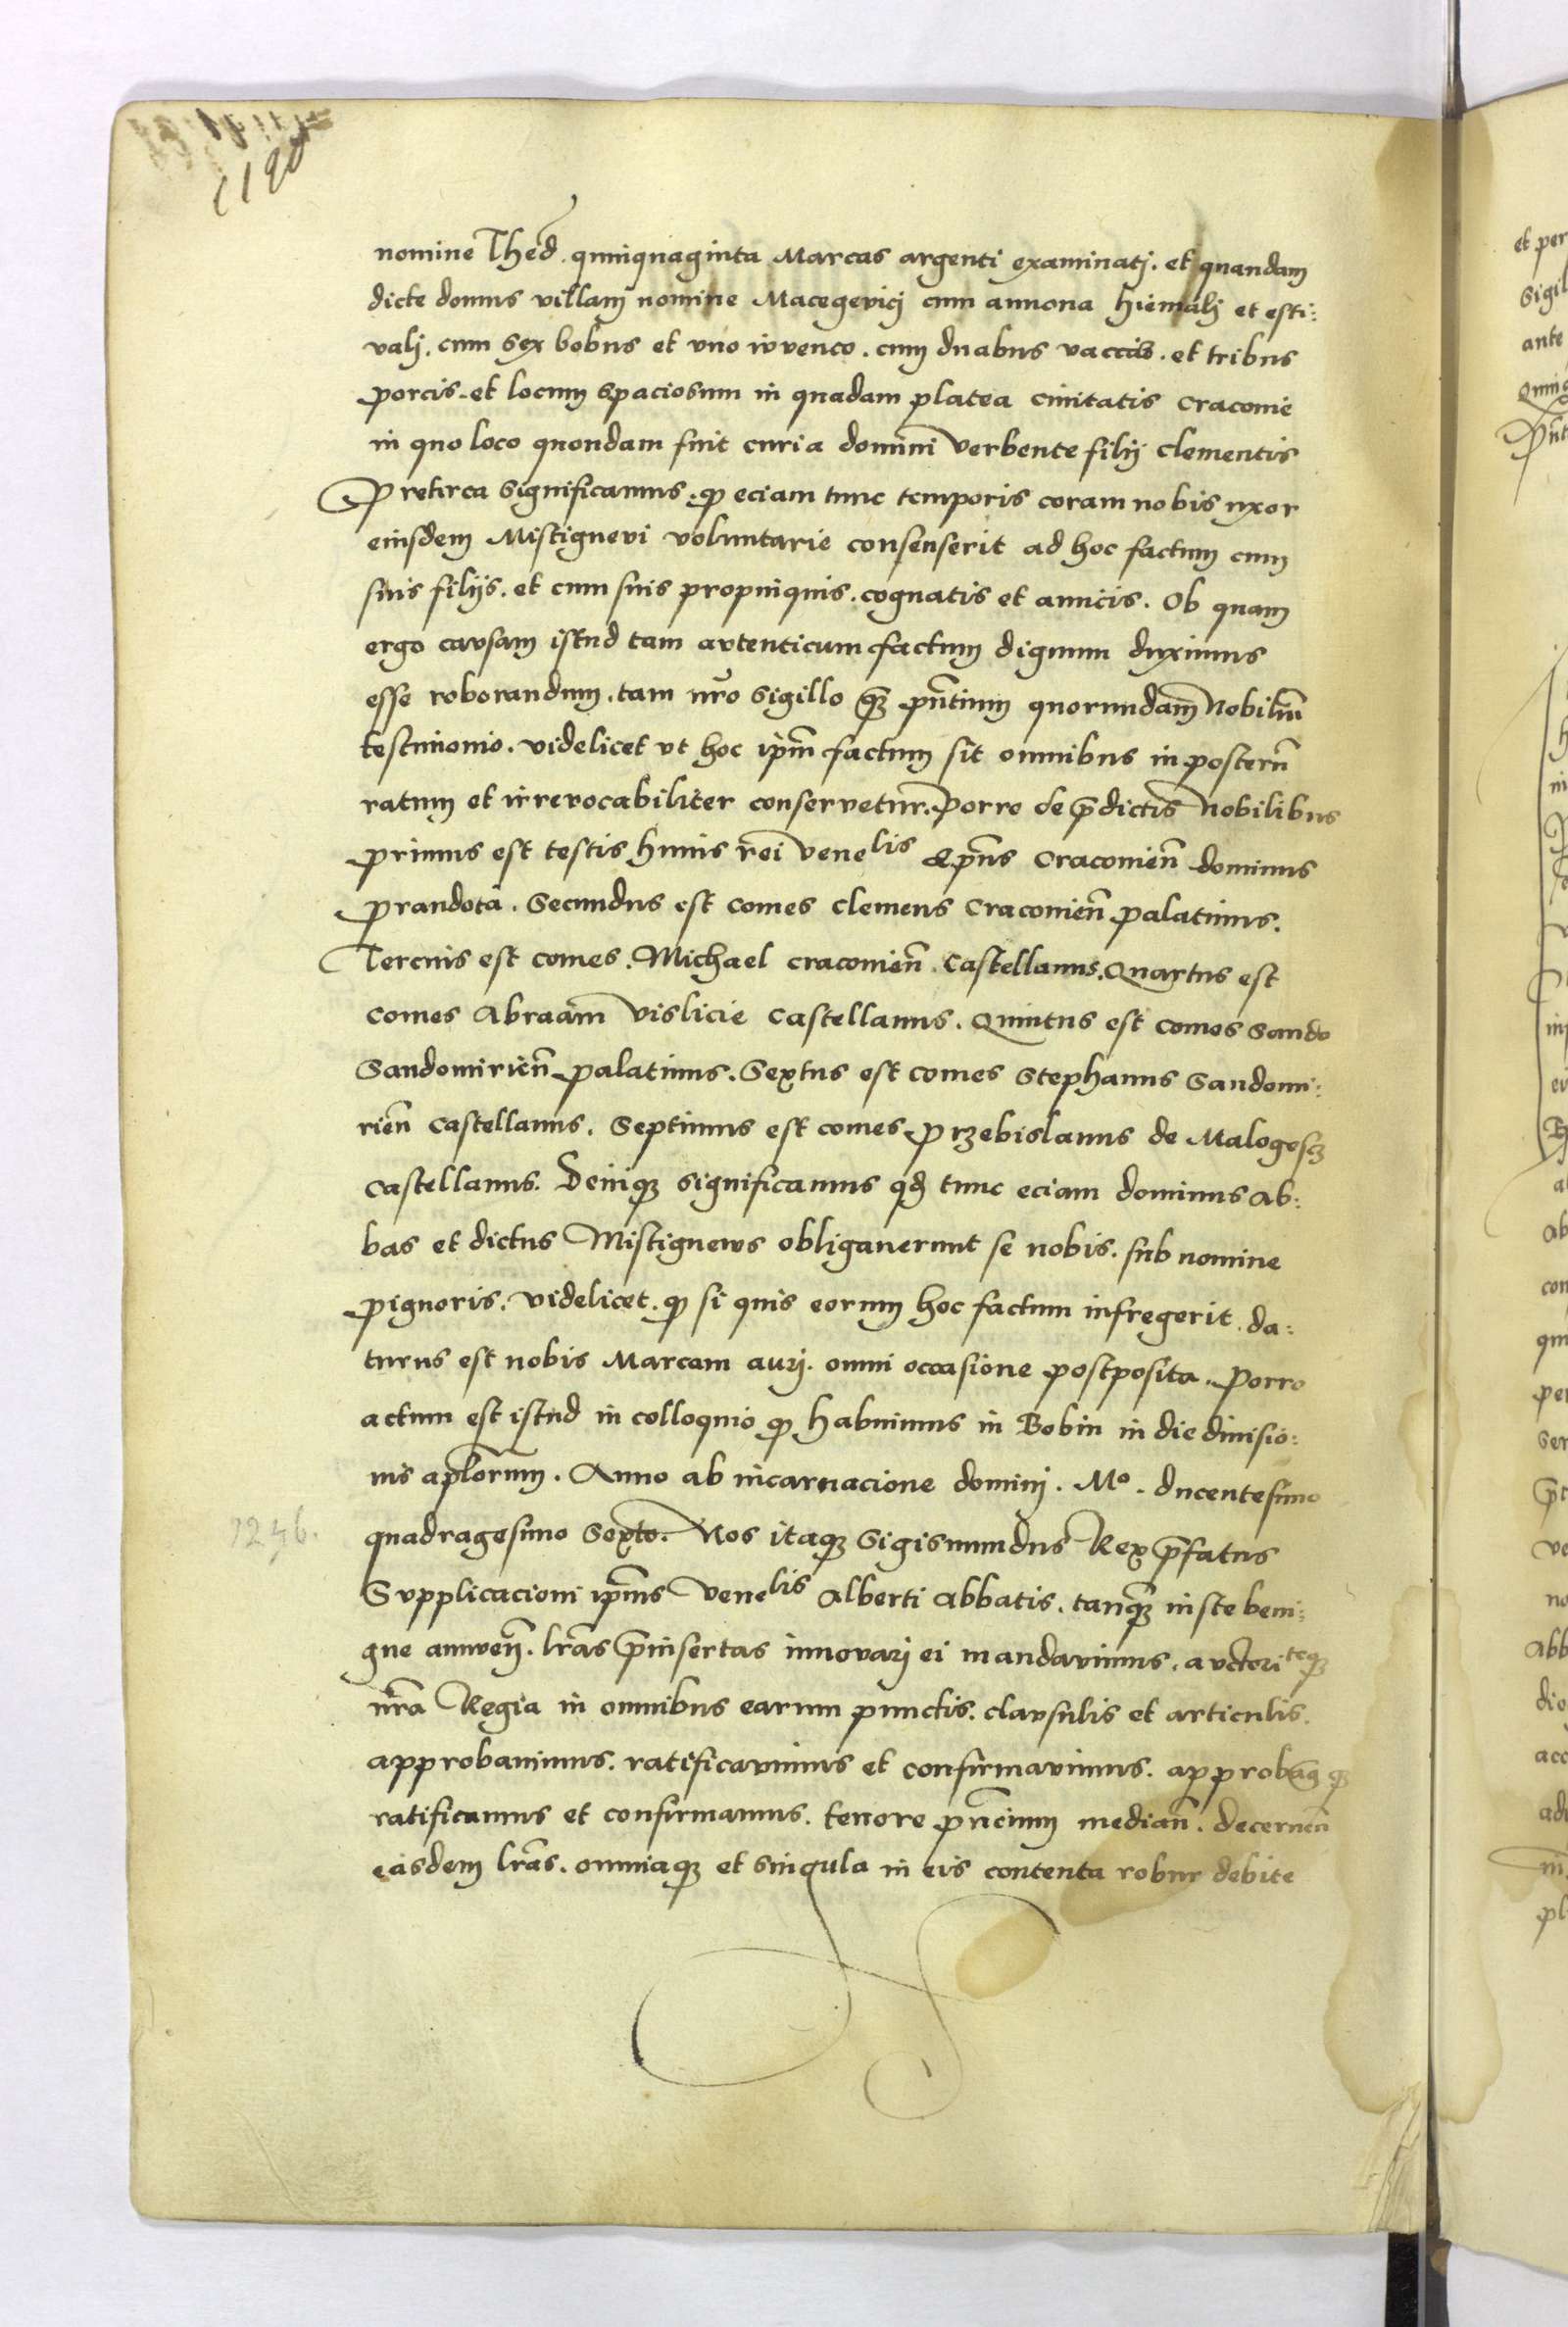 nomine Thed̃. quinquaginta Marcas argenti examinatj. et quandam
dicte domus villam nomine Macegevicj cum annona hiemalj et esti:
valj. cum sex bobus et vno iuvenco. cum duabus vaccis. et tribus
porcis. et locum spaciosum in quadam platea civitatis Cracovie
in quo loco quondam fuit curia domini Verbente filij Clementis
Preterea significamus. ꝙ eciam tunc temporis coram nobis uxor
eiusdem Mistignevi voluntarie consenserit ad hoc factum cum
suis filijs. et cum suis propinquis. cognatis et amicis. Ob quam
ergo cavsam istud tam avtenticum factum dignum duximus
esse roborandum. tam nr̃o sigillo qȝ pñtium quorundam Nobiliũ
testimonio. videlicet vt hoc ip̃m factum sit omnibus in posterũ
ratum et irrevocabiliter conservetur. Porro de p̃dictis Nobilibus
primus est testis huius rei Venelis Ep̃us Cracovieñ dominus
Prandota. Secundus est comes Clemens Cracovieñ palatinus.
Tercius est comes. Michael Cracovieñ. Castellanus. Quartus est
comes Abraam Vislicie Castellanus. Quintus est comes Sando
Sandomirieñ palatinus. Sextus est comes Stephanus Sandomi:
rieñ Castellanus. Septimus est comes Przebislaus de Malogoscz
Castellanus. Deniqȝ significamus qđ tunc eciam dominus Ab:
bas et dictus Mistignews obligaverunt se nobis. sub nomine
pignoris. videlicet. ꝙ si quis eorum hoc factum infregerit. da:
turus est nobis Marcam aurj. omni occasione postposita. Porro
actum est istud in colloquio ꝙ habuimus in Bobin in die divisio:
nis ap̃lorum. Anno ab incarnacione dominj. Mº. ducentesimo
1246.
quadragesimo Sexto. Nos itaqȝ Sigismundus Rex p̃fatus
Supplicacioni ip̃ius Venelis Alberti Abbatis. tanqȝ iuste beni:
gne annueñ. lr̃as p̃insertas innovarj ei mandavimus. auctoriteqȝ
nr̃a Regia in omnibus earum punctis. clavsulis et articulis.
approbavimus. ratificavimus et confirmavimus. approbamꝯqȝ
ratificamus et confirmamus. tenore pñcium mediañ. decerneñ
easdem lr̃as. omniaqȝ et singula in eis contenta robur debite